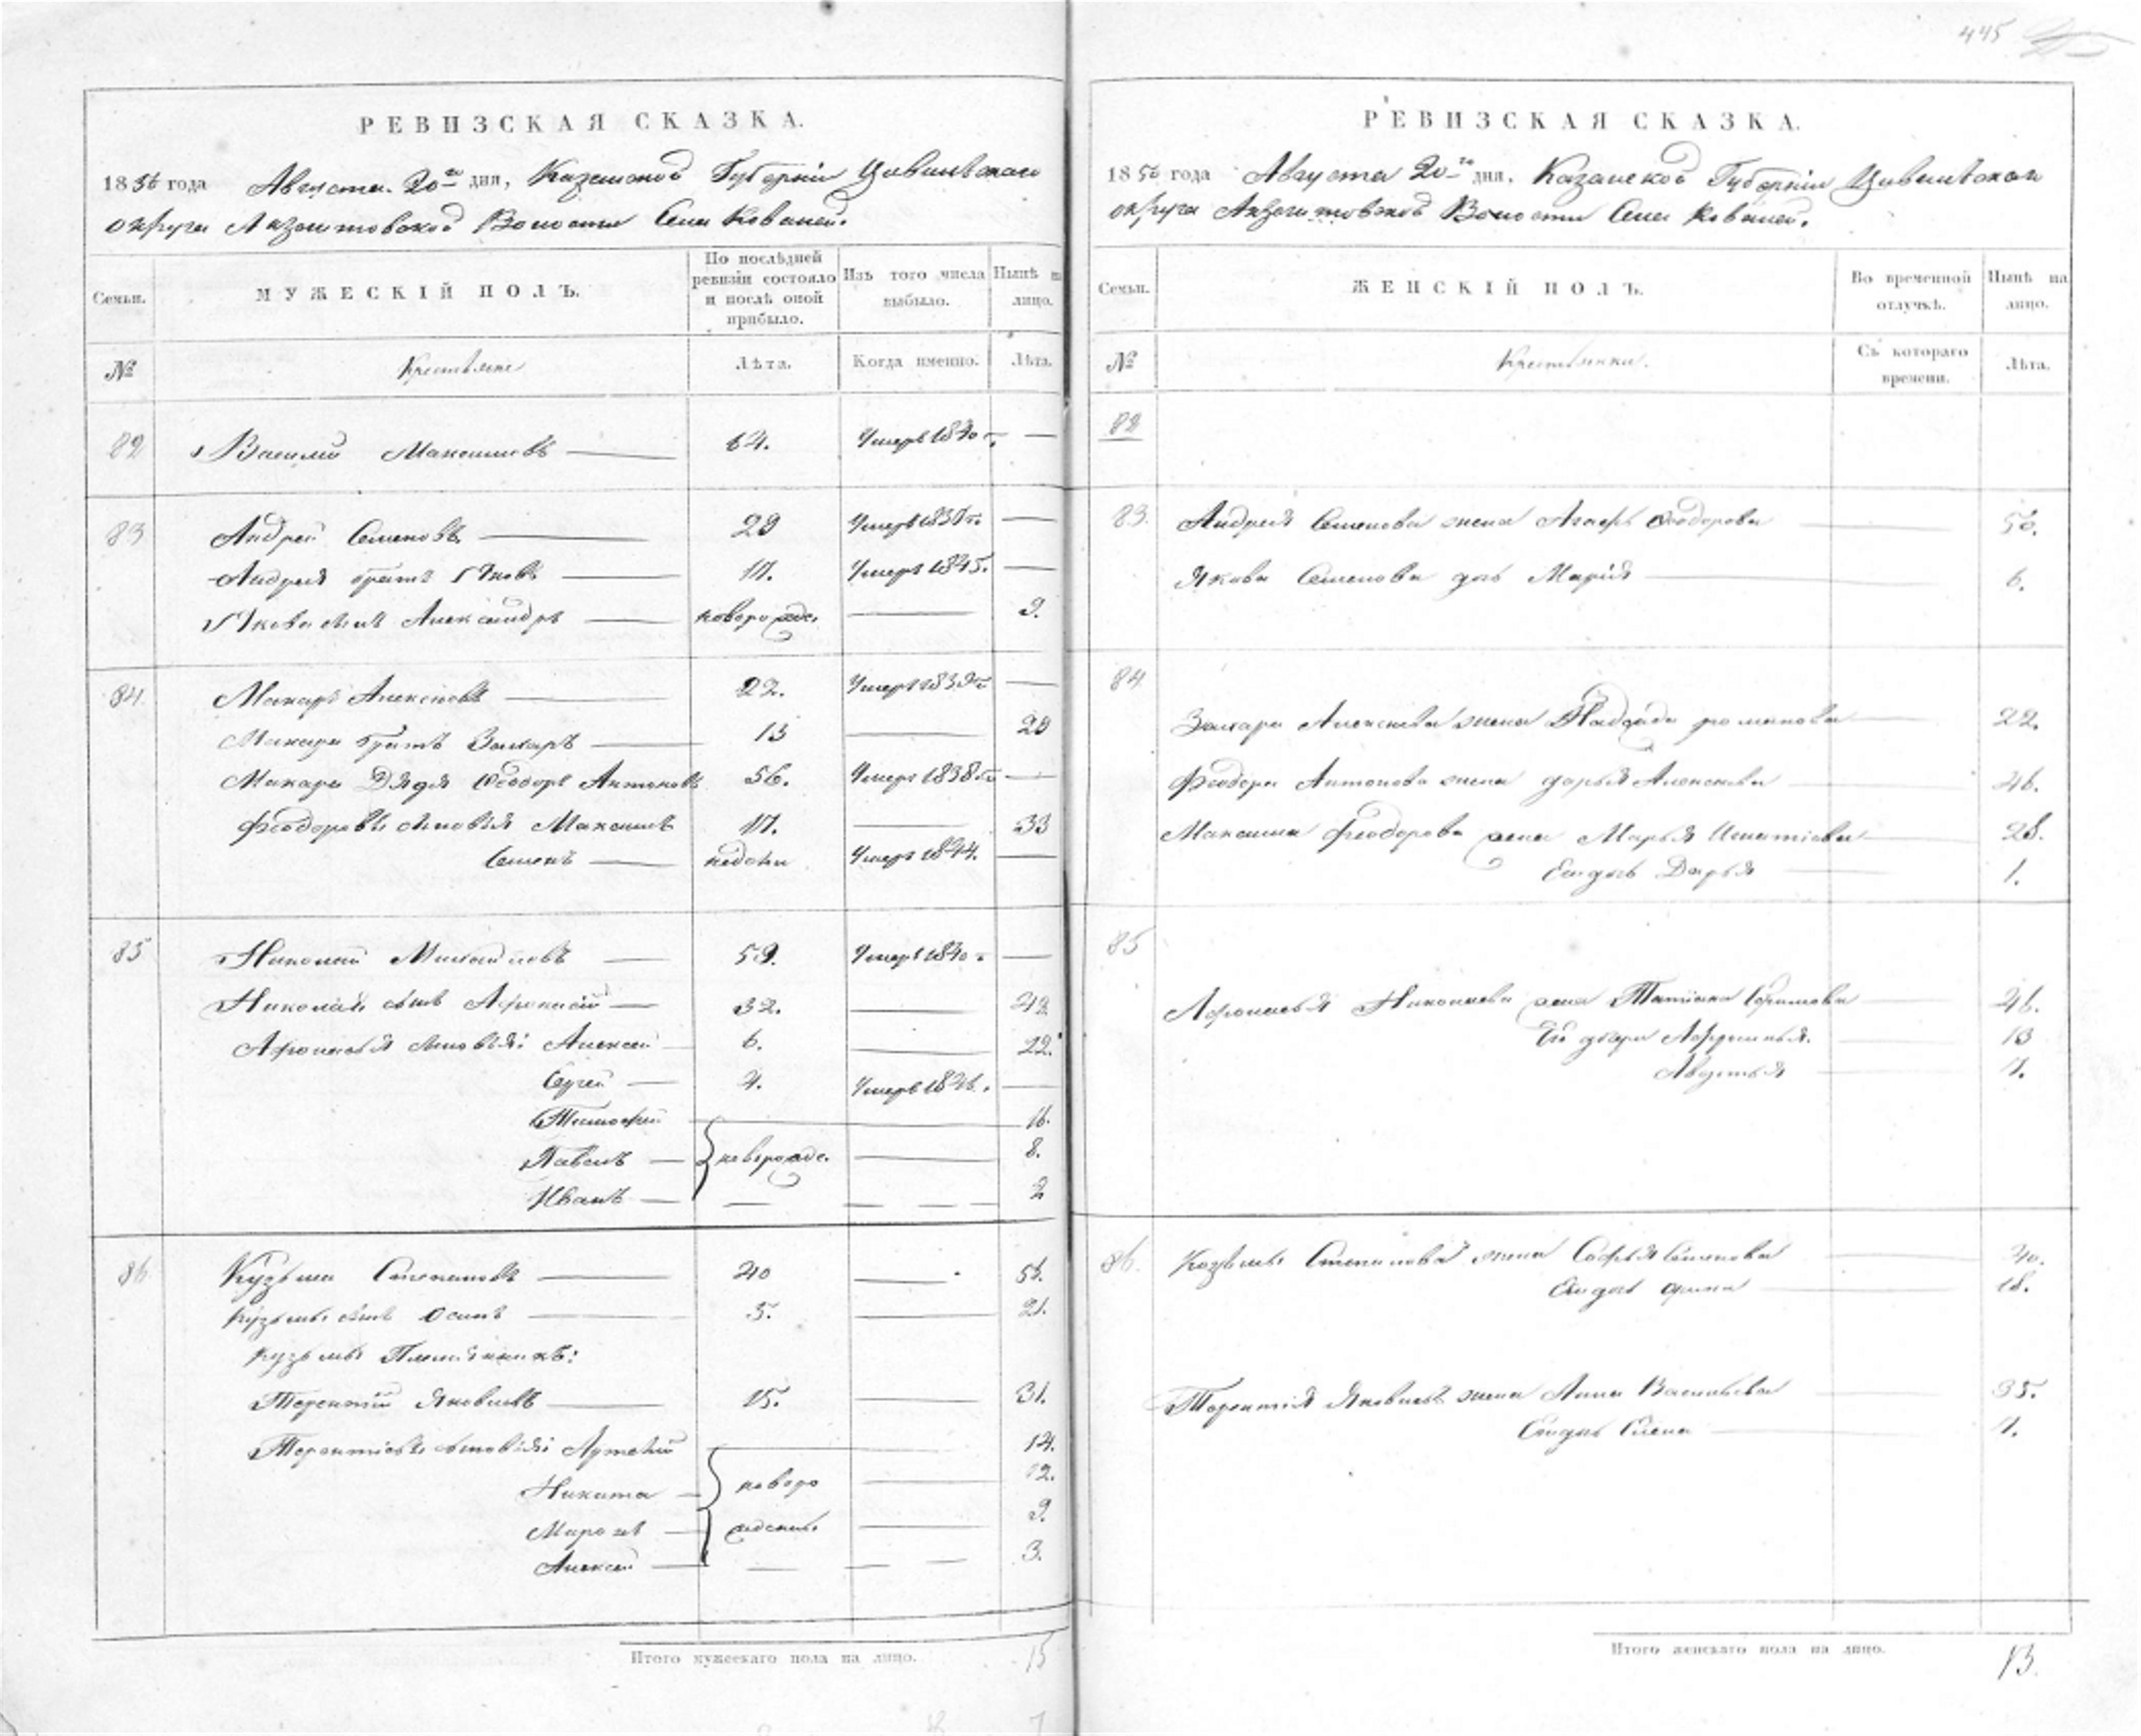 445
РЕВИЗСКАЯ СКАЗКА.
1850 года Августа 20го дня, Казанской Губерніи Цивильскаго
округа Волости Села Ковалей.
Семьи.
МУЖЕСКІЙ ПОЛЪ.
По послѣдней ревизіи состояло и послѣ оной прибыло.
Изъ того числа выбыло.
Нынѣ на лицо.
№
Крестьяне
Лѣта.
Когда именно.
Лѣта.
82 Василий Максимовъ 64. Умеръ 1840 г. —
83 Андрей Семеновъ 29 Умеръ г. —
Андрея братъ Яковъ 17. Умеръ 1845. —
Якова сынъ Александръ новорожд. — 9.
84 Макаръ Алексѣевъ 22. Умеръ 1839 г. —
Макара братъ Захаръ 13 — 29
Макара Дядя Ѳеодоръ Антоновъ 56. Умеръ 1838 г. —
Феодоровы сыновья Максимъ 17. — 33
Семенъ недѣли Умеръ 1844. —
85 Николай Михайловъ 59. Умеръ 1840 г. —
Николая сынъ Афонасій 32. — 48.
Афонасья сыновья: Алексей 6. — 22.
Сергей 4. Умеръ —
Тимофей — 16.
Павелъ новорожд. — 8.
Иванъ — — 2
86 Кузьма Степановъ 40 — 56.
Кузьмы сынъ Осипъ 5. — 21.
Кузьмы Племянникъ:
Терентій Яковлевъ 15. — 31.
Терентіевы сыновья: Артемій — 14.
Никита новоро — 12.
Миронъ жденные — 9.
Алексей — — 3.
Итого мужескаго пола на лицо. 15
РЕВИЗСКАЯ СКАЗКА.
1850 года Августа 20го дня. Казанской Губерніи Цивильскаго
округа Волости Села Ковалей.
Семьи.
ЖЕНСКІЙ ПОЛЪ.
Во временной отлучкѣ.
Нынѣ на лицо.
№
Крестьянки.
Съ котораго времени.
Лѣта.
82
83. Андрея Семенова жена Агафья Ѳеодорова 50.
Якова Семенова дочь Марія 6.
84 Захара Алексѣева жена Романова 22.
Феодора Антонова жена Дарья Алексѣева 46.
Максима Феодорова жена Марья Игнатіева 28.
Ея дочь Дарья 1.
85 Афонасья Николаева жена Татіана Ефимова 46.
Ея дочери 13
Авдотья 7.
86. Козьмы Степанова жена Софья Семенова 40.
Ея дочь 18.
Терентія Яковлева жена Анна Васильева 35.
Ея дочь Елена 7.
Итого женскаго пола на лицо. 13.